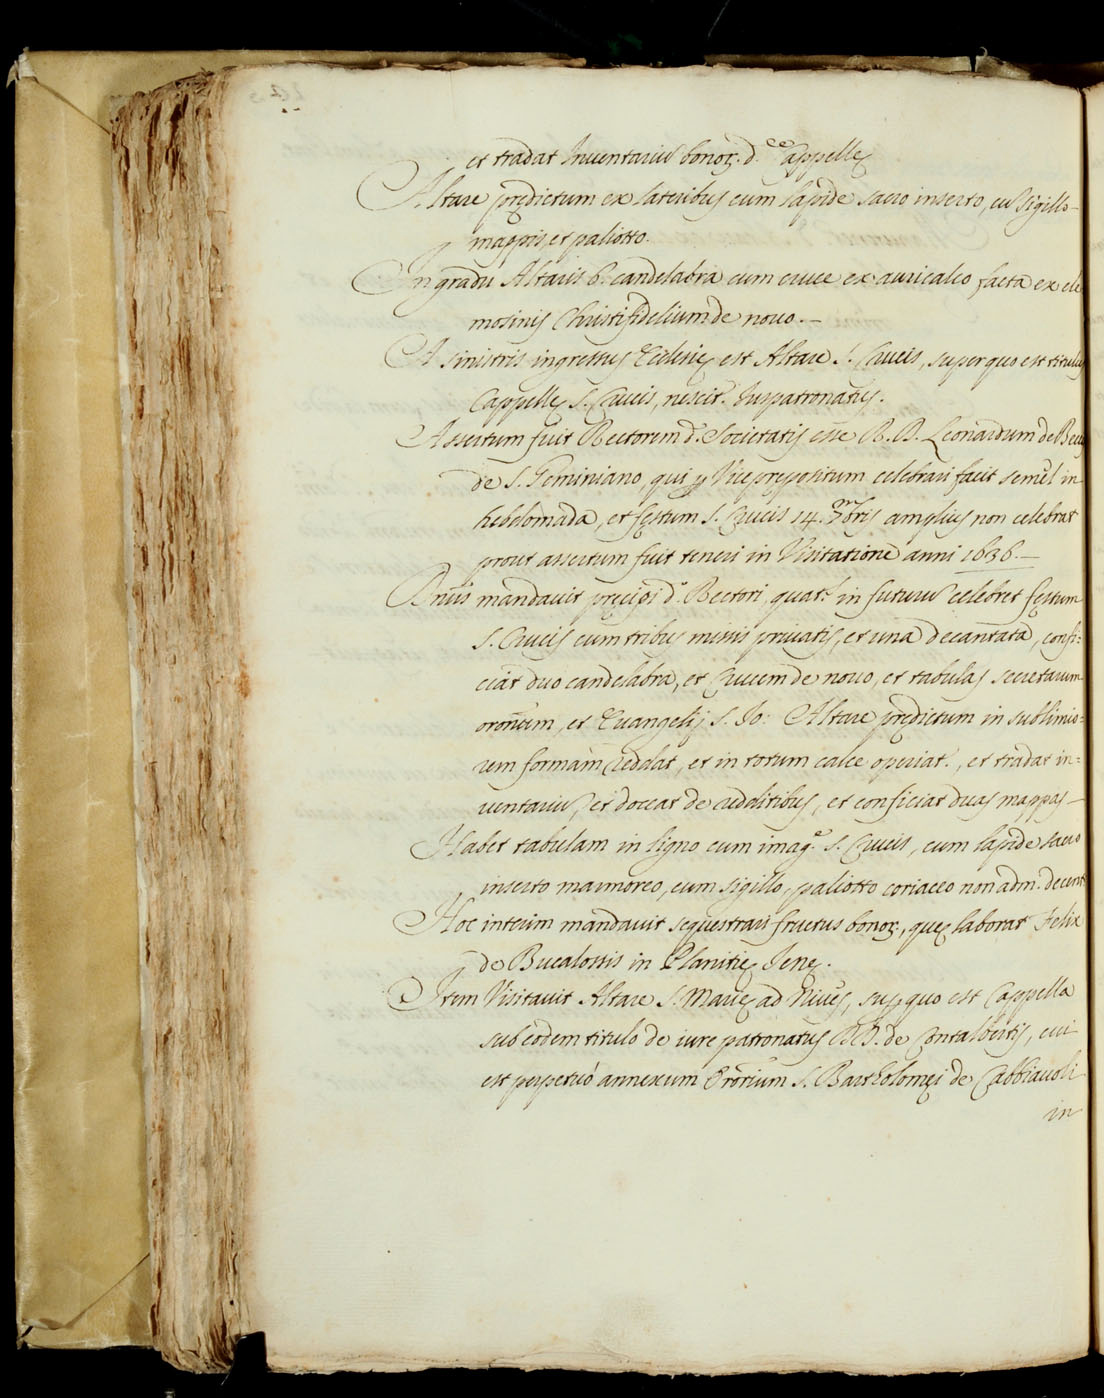 et tradat Inventariũ bonoꝝ. d.ᶜᵉ Cappellę
Altare prędictum ex lateribus cum lapide sacro inserto, cũ sigillo
mappis, et paliotto.
In gradu Altaris 6. candelabra cum cruce ex auricalco facta ex ele
mosinis Christifidelium de nouo.—
A sinistris ingressus Ecclesię est Altare S. Crucis, super quo est titulus
Cappellę S. Crucis, nescit.ʳ Iuspatronatus.
Assertum fuit Rectorem d. Societatis esse R. D. Leonardum de Becci
de S. Geminiano, qui ꝑ Viceprępositum celebrari facit semel in
hebdomada, et festum S. Crucis 14. 7mbris amplius non celebrat
prout assertum fuit teneri in Visitatione anni 1636.—
D.nus mandauit pręcipi d.º Rectori, quat.s in futurũ celebret festum
S. Crucis cum tribus missis priuatis, et una decantata, confi=
ciat duo candelabra, et Crucem de nouo, et tabulas secretarum
oronum, et Euangelij S. Io: Altare prędictum in sublimio=
rem formam reddat, et in totum calce operiat.ʳ, et tradat in=
uentariũ, et doceat de redditibus, et conficiat duas mappas—
Habet tabulam in ligno cum imag.e S. Crucis, cum lapide sacro
inserto marmoreo, cum sigillo, paliotto coriaceo non adm. decent
Hoc interim mandauit sequestrari fructus bonoꝝ, quę laborat Felix
de Bucalossis in Planitie
Item Visitauit Altare S. Marię ad Niues, sup quo est Cappella
sub eodem titulo de iure patronatus DD. de
cui
est perpetuò annexum Orōrium S. Bartholomęi de Cabbiauoli
in